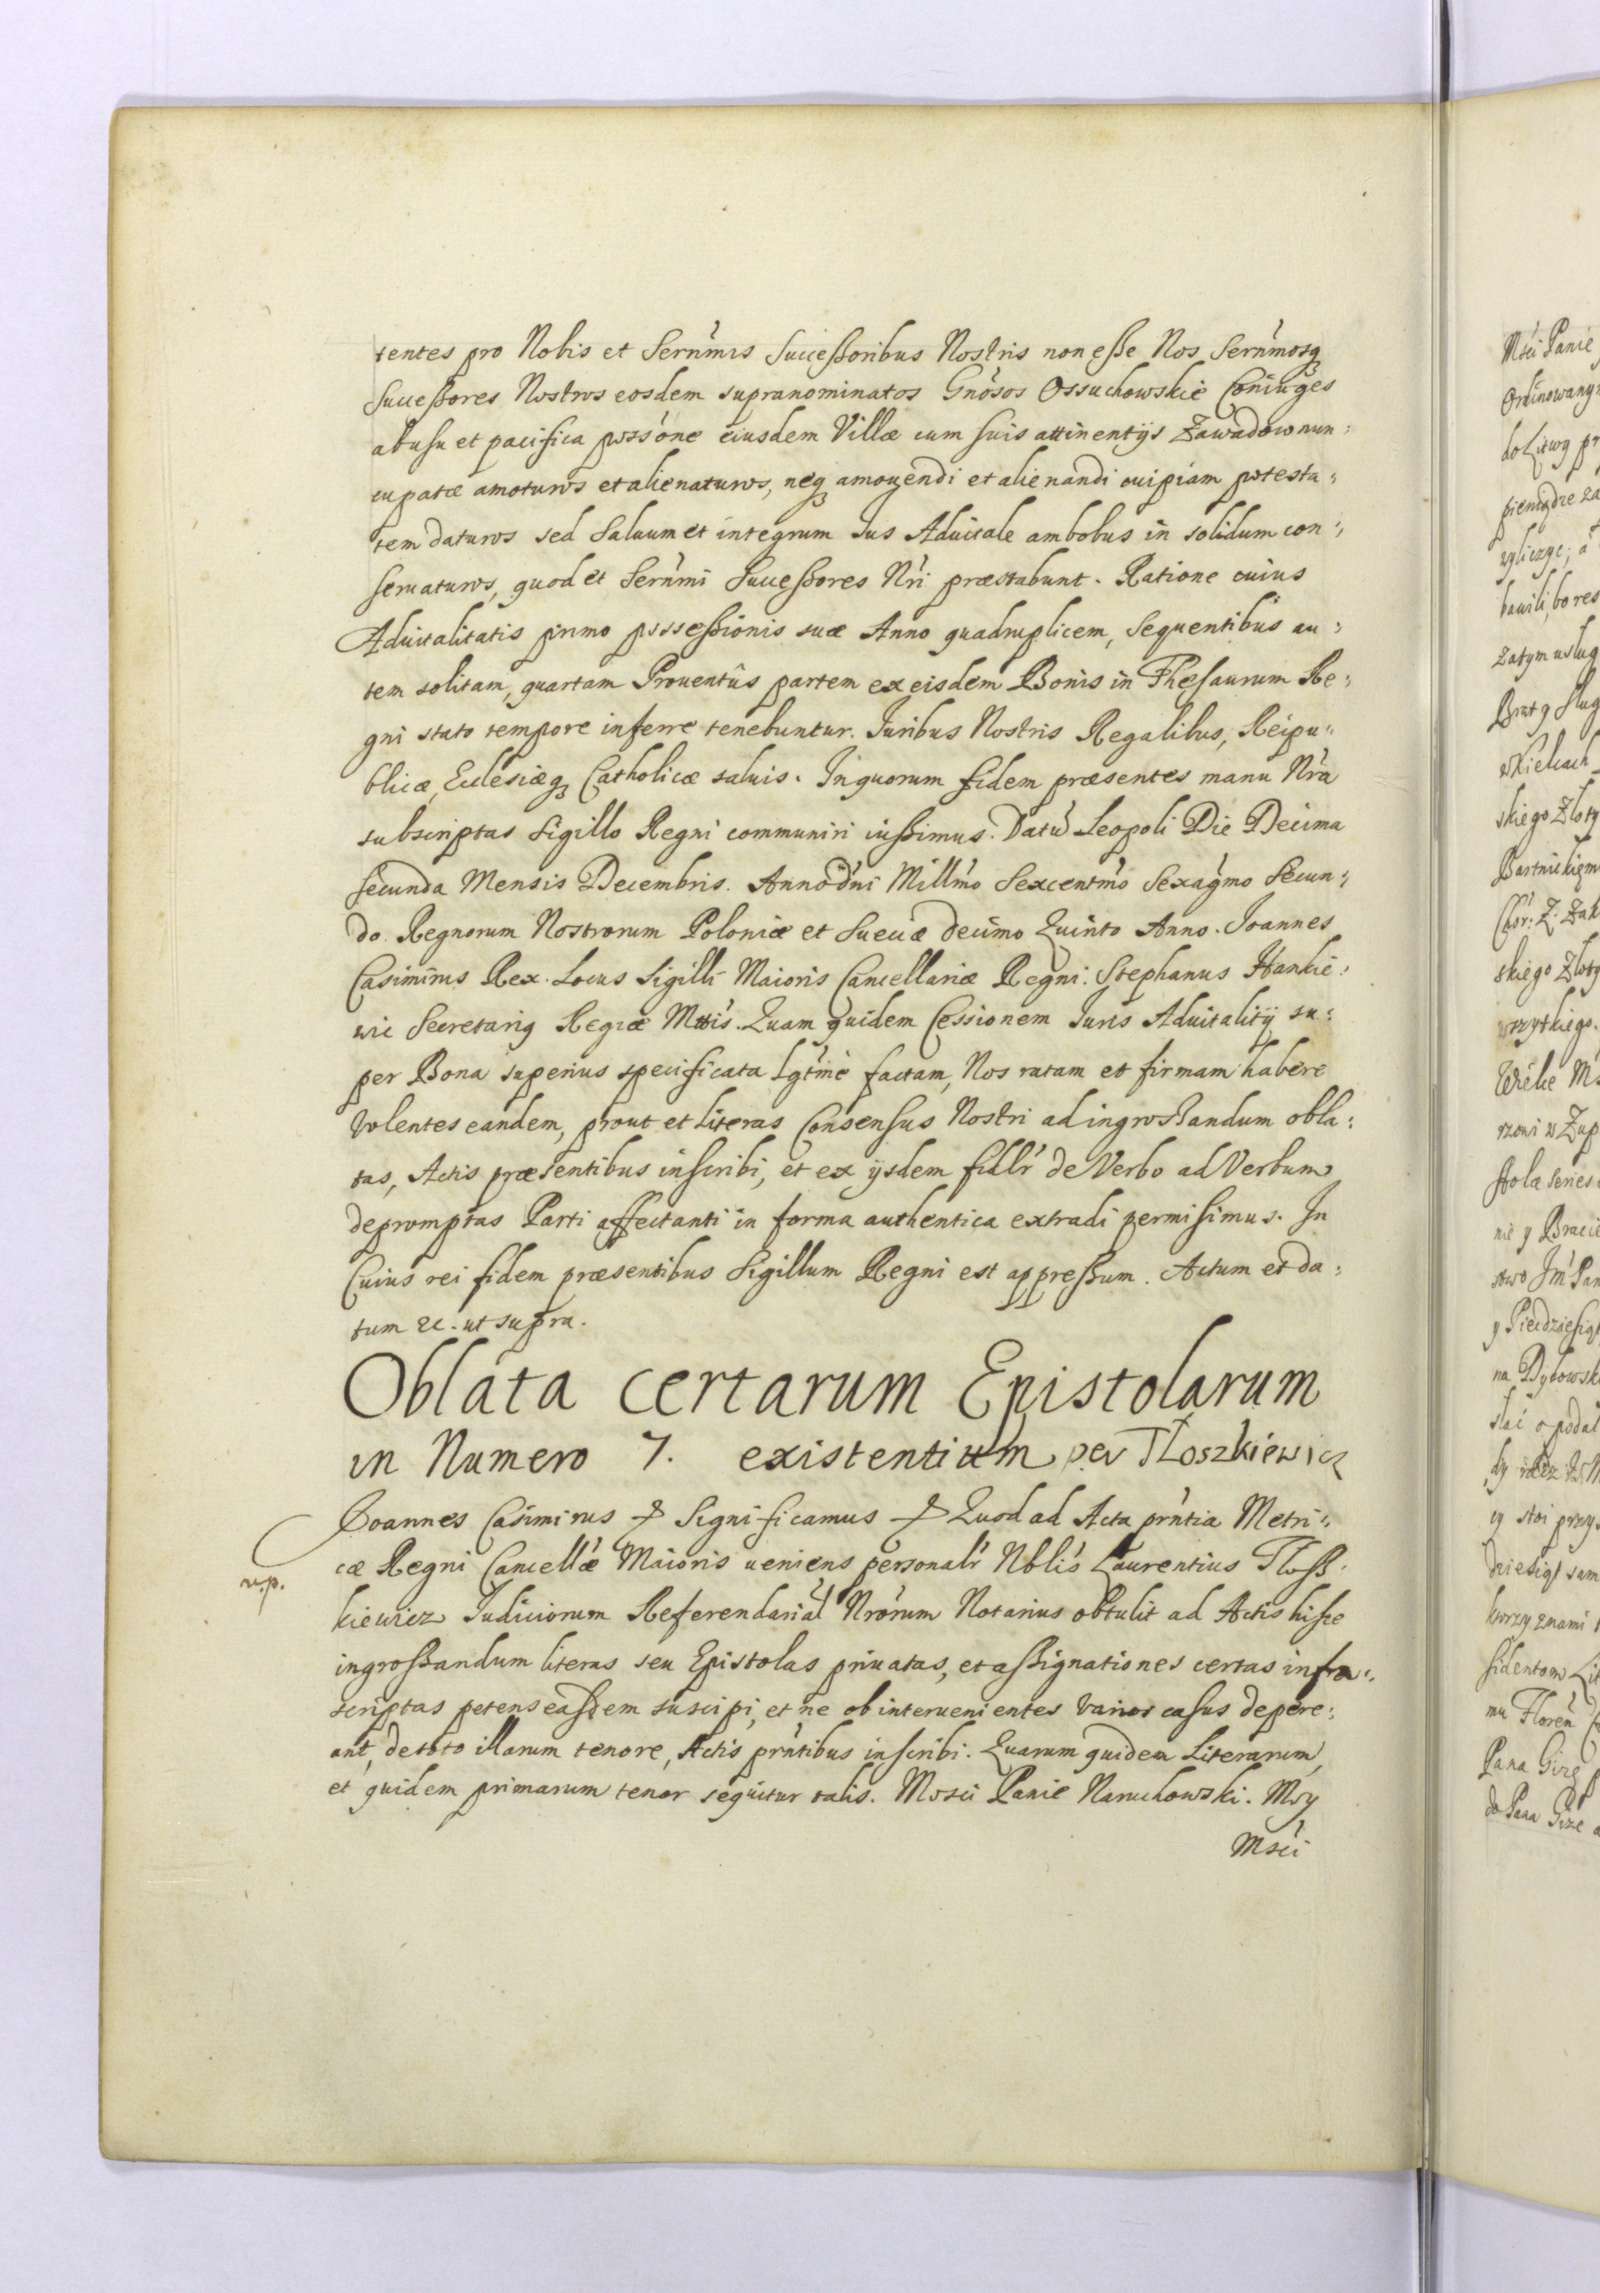 tentes pro Nobis et Serñmis Successoribus Nostris non esse Nos Serñmosq
Successores Nostros eosdem supranominatos Gnosos Ossuchowskie Coniuges
ab usu et pacifica posśone eiusdem Villæ cum suis attinentijs Zawadow nun:
cupatæ amoturos et alienaturos, neq amouendi et alienandi cuipiam potesta:
tem daturos sed Saluum et integrum Ius Aduitale ambobus in solidum con:
seruaturos, quod et Serñmi Successores Nri præstabunt. Ratione cuius
Aduitalitatis primo possessionis suæ Anno quadruplicem, Sequentibus au:
tem solitam, quartam Prouentûs partem ex eisdem Bonis in Thesaurum Re:
gni stato tempore inferre tenebuntur. Iuribus Nostris Regalibus, Reipu:
blicæ, Ecclesiæq Catholicæ saluis. In quorum fidem præsentes manu Nra
subscriptas Sigillo Regni communiri iussimus. Datū Leopoli Die Decima
secunda Mensis Decembris. Anno dni Millmo Sexcentmo Sexagmo Secun:
do. Regnorum Nostrorum Poloniæ et Sueciæ decimo Quinto Anno. Ioannes
Casimirus Rex. Locus Sigilli Maioris Cancellariæ Regni. Stephanus Hankie:
wic Secretarig Regiæ Mttis. Quam quidem Cessionem Iuris Aduitalitij su:
per Bona superius specificata Lgtme factam, Nos ratam et firmam habere
Volentes eandem, prout et literas Consensus Nostri ad ingrossandum obla:
tas, Actis præsentibus inscribi, et ex ijsdem fidlr de Verbo ad Verbum
depromptas Parti affectanti in forma authentica extradi permisimus. In
Cuius rei fidem præsentibus Sigillum Regni est appressum. Actum et da:
tum &c. ut supra.
Oblata certarum Epistolarum
in Numero 7. existentium per Tłoszkiewicz
Ioannes Casimirus Significamus Quod ad Acta prntia Metri:
cæ Regni Cancellæ Maioris ueniens personalr Nblis Laurentius Tloss:
v.p.
kiewicz Iudiciorum Referendarial Nrorum Notarius obtulit ad Actis hisce
ingrossandum literas seu Epistolas priuatas, et assignationes certas infra:
scriptas petens easdem suscipi, et ne ob interuenientes varios casus depere:
ant, de toto illarum tenore, Actis prntibus inscribi. Quarum quidem Literarum,
et quidem primarum tenor sequitur talis. Mosci Panie Naruchowski. Moy
Msci